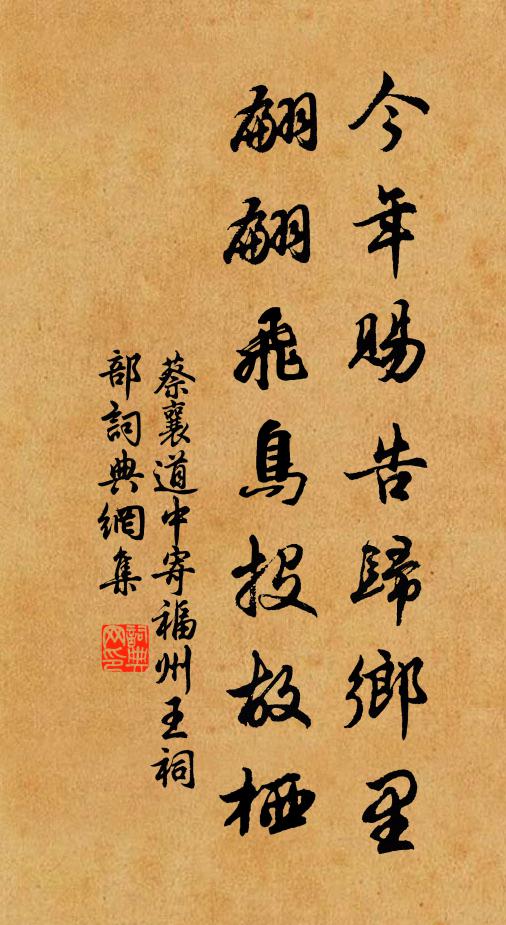 今年賜告歸鄉里
翩翩飛鳥投故栖
蔡襄道中寄福州王祠
部詞典網集
詞典网印